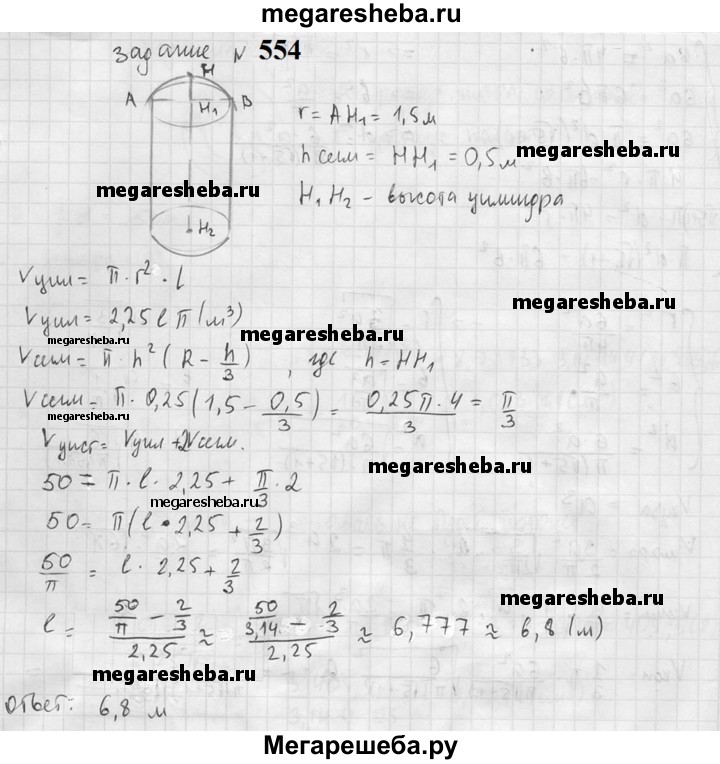 megaresheba.ru
задание № 554
H
A H₁ B
r = AH₁ = 1,5 м
h сегм = HH₁ = 0,5 м
megaresheba.ru
megaresheba.ru
H₁H₂ - высота цилиндра
H₂
Vцил = π · r² · l
Vцил = 2,25 l π (м³)
megaresheba.ru
megaresheba.ru
megaresheba.ru
Vсегм = π · h² (R - h/3), где h = HH₁
Vсегм = π · 0,25 (1,5 - 0,5/3) = 0,25π · 4/3 = π/3
megaresheba.ru
Vцист = Vцил + 2Vсегм.
megaresheba.ru
50 = π · l · 2,25 + π/3 · 2
megaresheba.ru
50 = π (l · 2,25 + 2/3)
50/π = l · 2,25 + 2/3
megaresheba.ru
l = (50/π - 2/3)/2,25 ≈ (50/3,14 - 2/3)/2,25 ≈ 6,777 ≈ 6,8 (м)
megaresheba.ru
Ответ: 6,8 м
Мегарешеба.ру